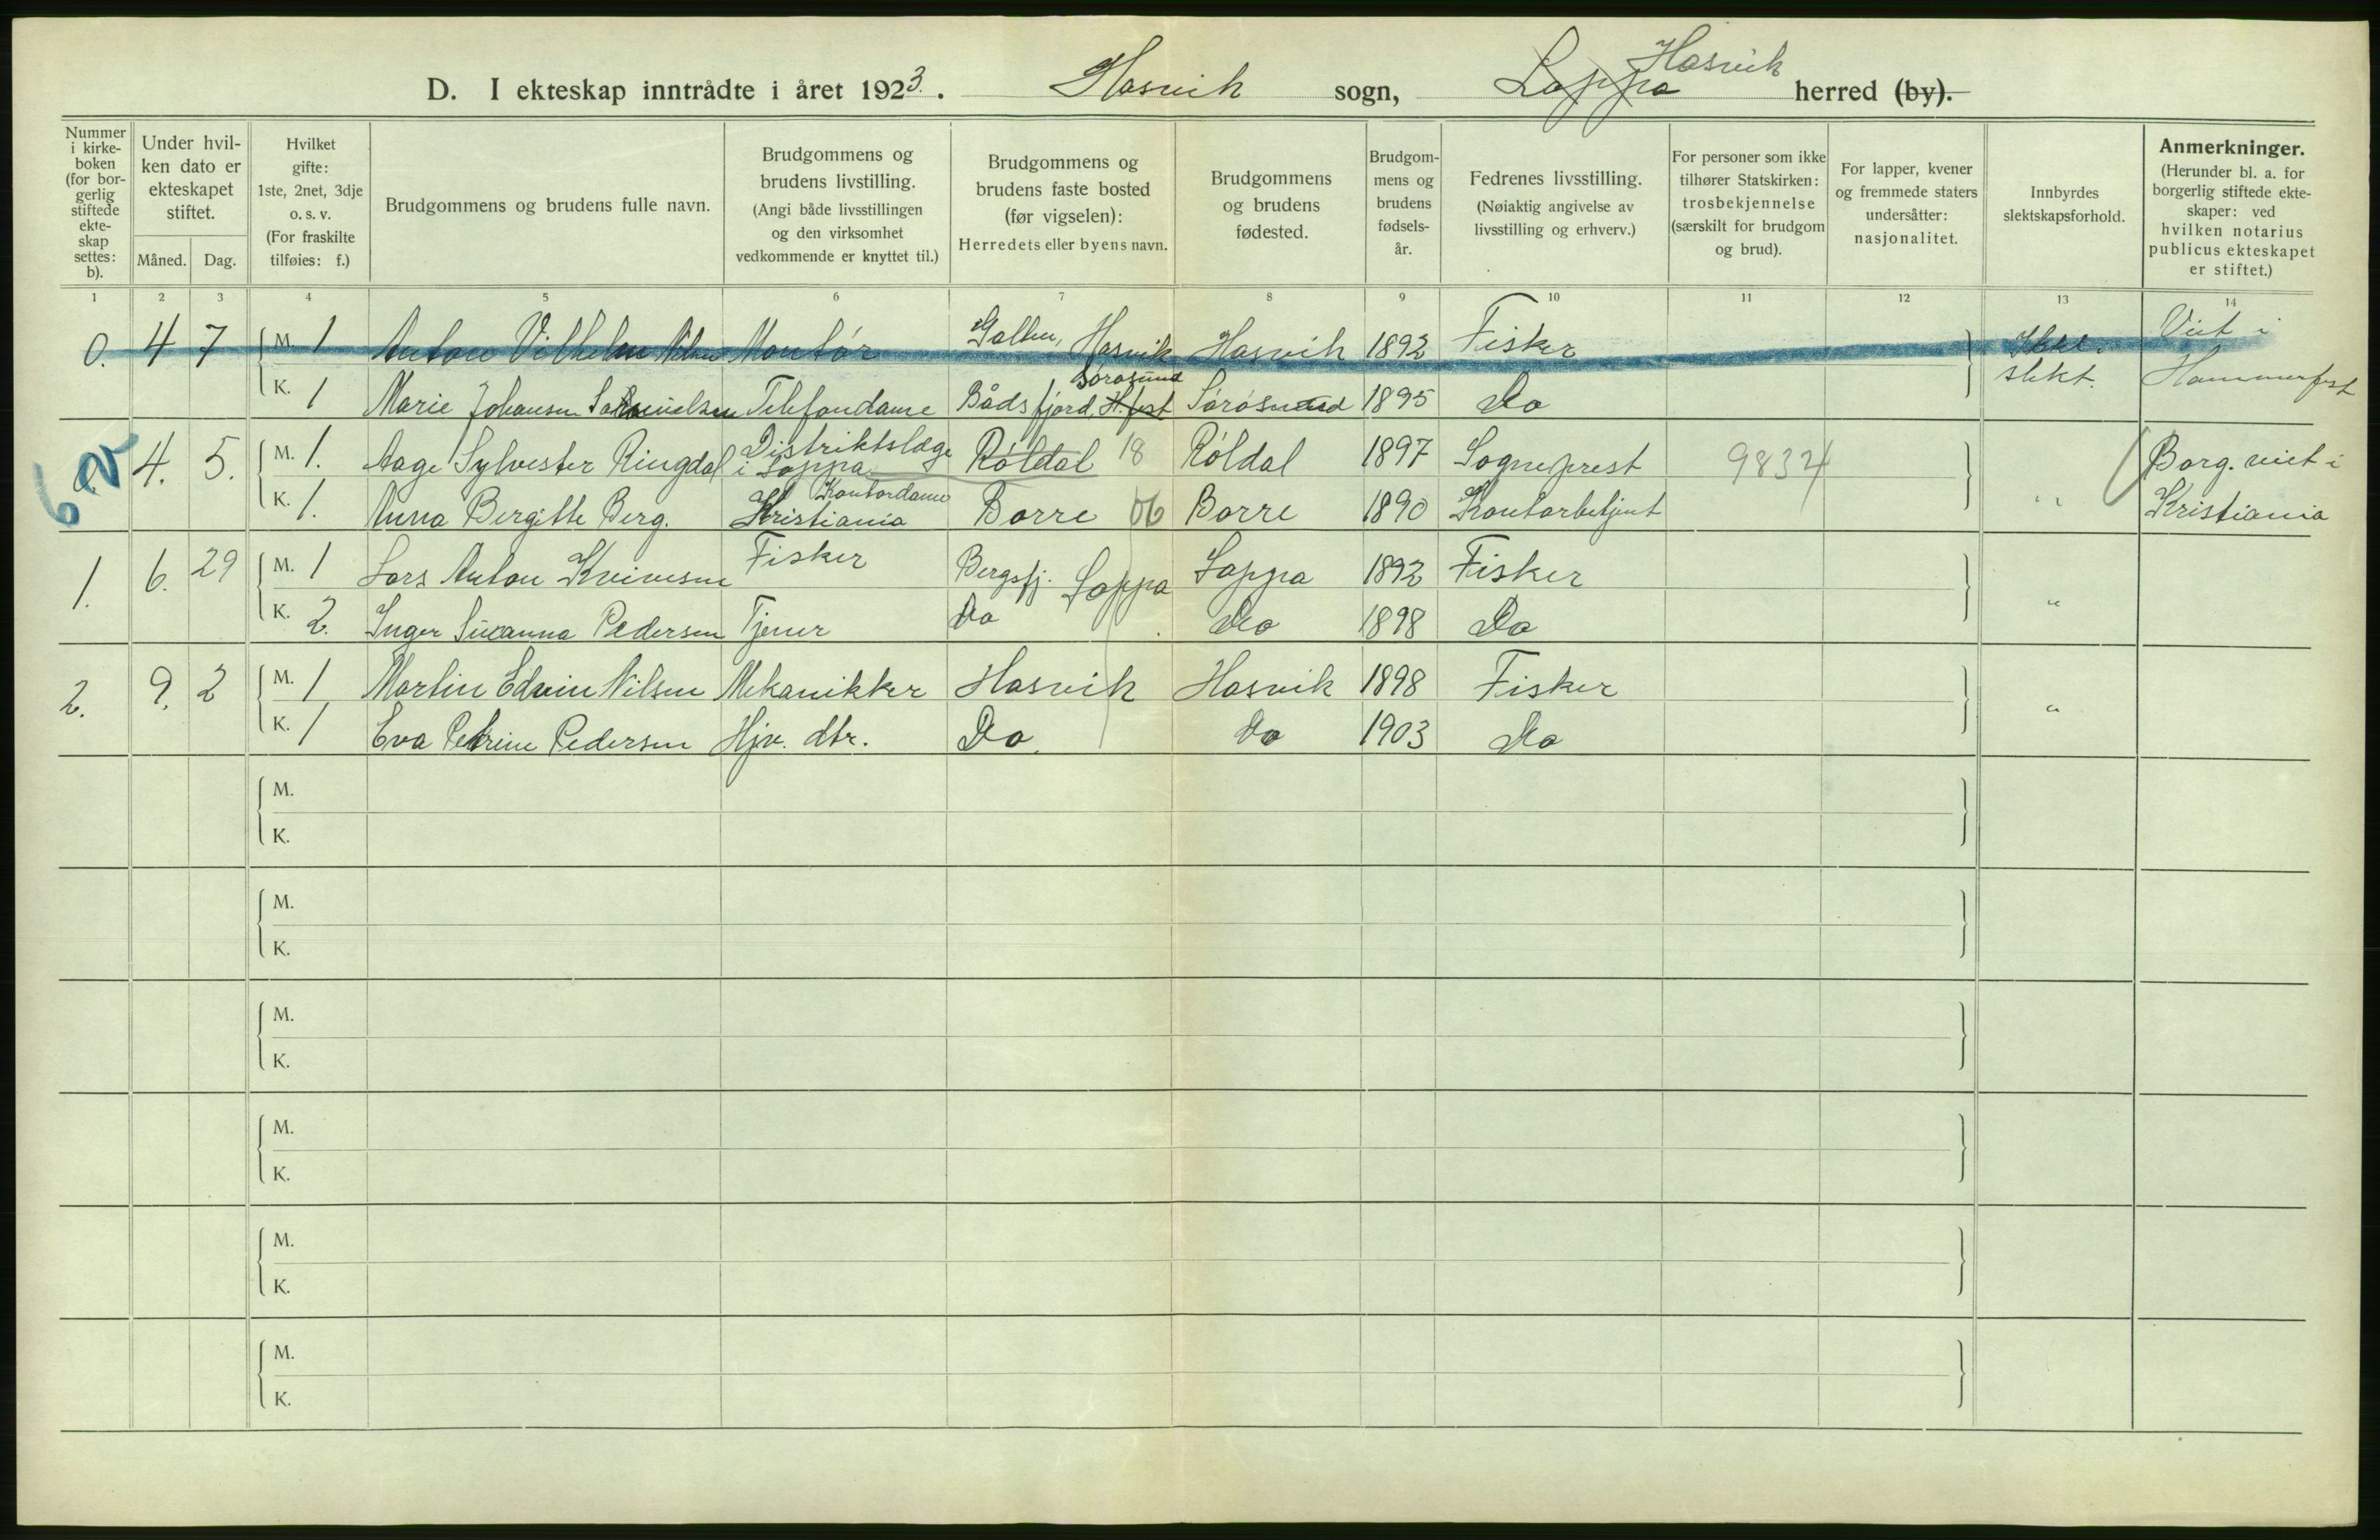 D. I ekteskap inntrådte i året 1923. Hasvik sogn, Loppa Hasvik herred (by).
Nummer i kirkeboken (for borgerlig stiftede ekteskap settes: b).
Under hvilken dato er ekteskapet stiftet.
Måned. Dag.
Hvilket gifte: 1ste, 2net, 3dje o. s. v. (For fraskilte tilføies: f.)
Brudgommens og brudens fulle navn.
Brudgommens og brudens livstilling. (Angi både livsstillingen og den virksomhet vedkommende er knyttet til.)
Brudgommens og brudens faste bosted (før vigselen): Herredets eller byens navn.
Brudgommens og brudens fødested.
Brudgommens og brudens fødselsår.
Fedrenes livsstilling. (Nøiaktig angivelse av livsstilling og erhverv.)
For personer som ikke tilhører Statskirken: trosbekjennelse (særskilt for brudgom og brud).
For lapper, kvener og fremmede staters undersåtter: nasjonalitet.
Innbyrdes slektskapsforhold.
Anmerkninger. (Herunder bl. a. for borgerlig stiftede ekteskaper: ved hvilken notarius publicus ekteskapet er stiftet.)
1 2 3 4 5 6 7 8 9 10 11 12 13 14
0. 4 7 M. 1 Anton Vilhelm Nilsen Montør Galten, Hasvik Hasvik 1892 Fisker Ikke i slekt. Viet i Hammerfest
K. 1 Marie Johansen Samuelsen Telefondame Bådsfjord, H.fest Sørøsund Sørøsund 1895 Do
4. 5. M. 1. Aage Sylvester Ringdal Distriktslæge i Loppa Røldal 18 Røldal 1897 Sogneprest 9834 " Borg. viet i Kristiania
K. 1. Anna Bergitte Berg. Kontordame Kristiania Borre 06 Borre 1890 Kontorbetjent
1. 6. 29 M. 1 Lars Anton Kvivesen Fisker Bergsfj. Loppa Loppa 1892 Fisker "
K. 2. Inger Susanna Pedersen Tjener Do Do 1898 Do
2. 9. 2 M. 1 Martin Edvin Nilsen Mekanikker Hasvik Hasvik 1898 Fisker "
K. 1 Eva Petrine Pedersen Hjv. dtr. Do. Do 1903 Do
M.
K.
M.
K.
M.
K.
M.
K.
M.
K.
M.
K.